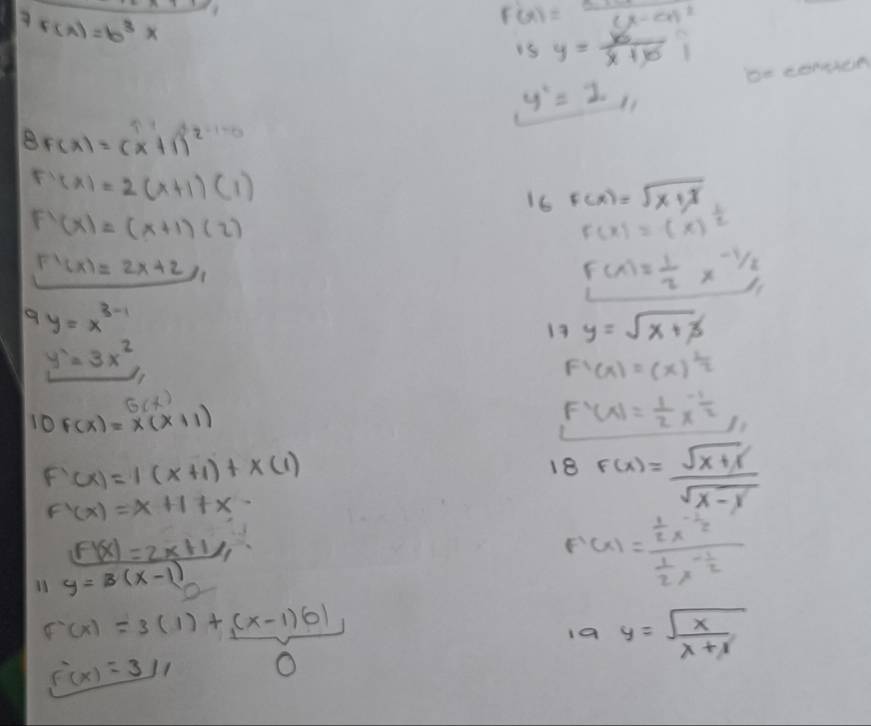 7 F(x) = b³ x
8 F(x) = (x+1)²
F'(x) = 2(x+1)(1)
F'(x) = (x+1)(2)
F'(x) = 2x+2
9 y = x³⁻¹
y' = 3x²
10 F(x) = x(x+1)
F'(x) = 1(x+1) + x(1)
F'(x) = x+1+x
F'(x) = 2x+1
11 y = 3(x-1)
F'(x) = 3(1) + (x-1)(0)
0
F'(x) = 3
F(x) =
15 y =
y' = 1
16 F(x) = √x+1
F(x) = (x)^½
F(x) = 1/2 x^-1/2
17 y = √x+3
F'(x) = (x)^½
F'(x) = 1/2 x^-1/2
18 F(x) = √x+1 / √x-1
F'(x) = 1/2 x^-1/2 / 1/2 x^-1/2
19 y = √x/x+1